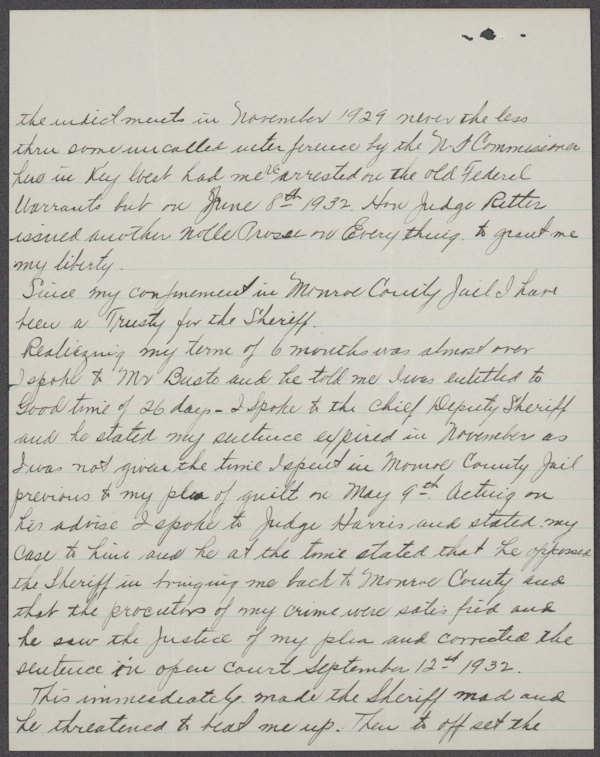 the indictments in November 1929 never the less
thru some uncalled interference by the U S Commissioner
here in Key West had me re arrested on the old Federal
Warrants but on June 8th 1932 Hon Judge Ritter
issued another Nolle Prosse on Everything. to grant me
my liberty.
Since my confinement in Monroe County Jail I have
been a Trusty for the Sheriff.
Realiezing my term of 6 months was almost over
I spoke to Mr Busto and he told me I was entitled to
Good time of 26 days - I Spoke to the Chief Deputy Sheriff
and he stated my sentence expired in November as
I was not given the time I spent in Monroe County Jail
previous to my plea of guilt on May 9th Acting on
his advise I spoke to Judge Harris and stated my
case to him and he at the time stated that he oppossed
the Sheriff in bringing me back to Monroe County and
that the procutors of my crime were satisfied and
he saw the Justice of my plea and corrected the
sentence in open court September 12th 1932.
This immeediately made the Sheriff mad and
he threatened to beat me up. Then to off set the